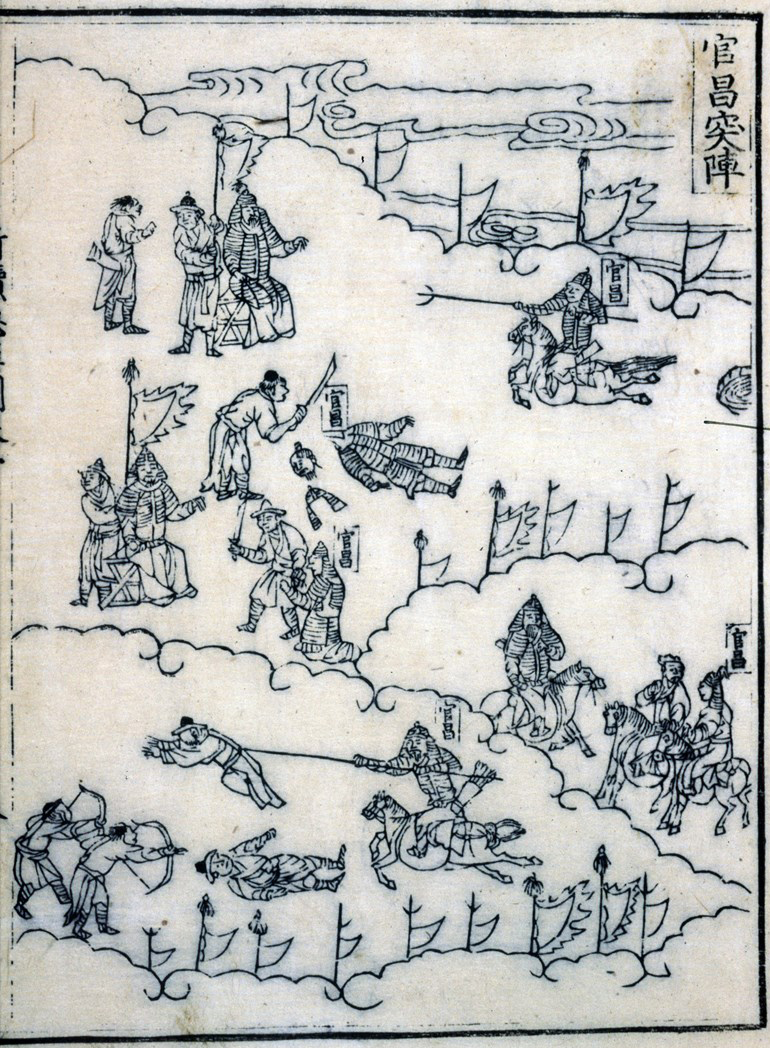 官昌突陣
官昌
官昌
官昌
官昌
官昌